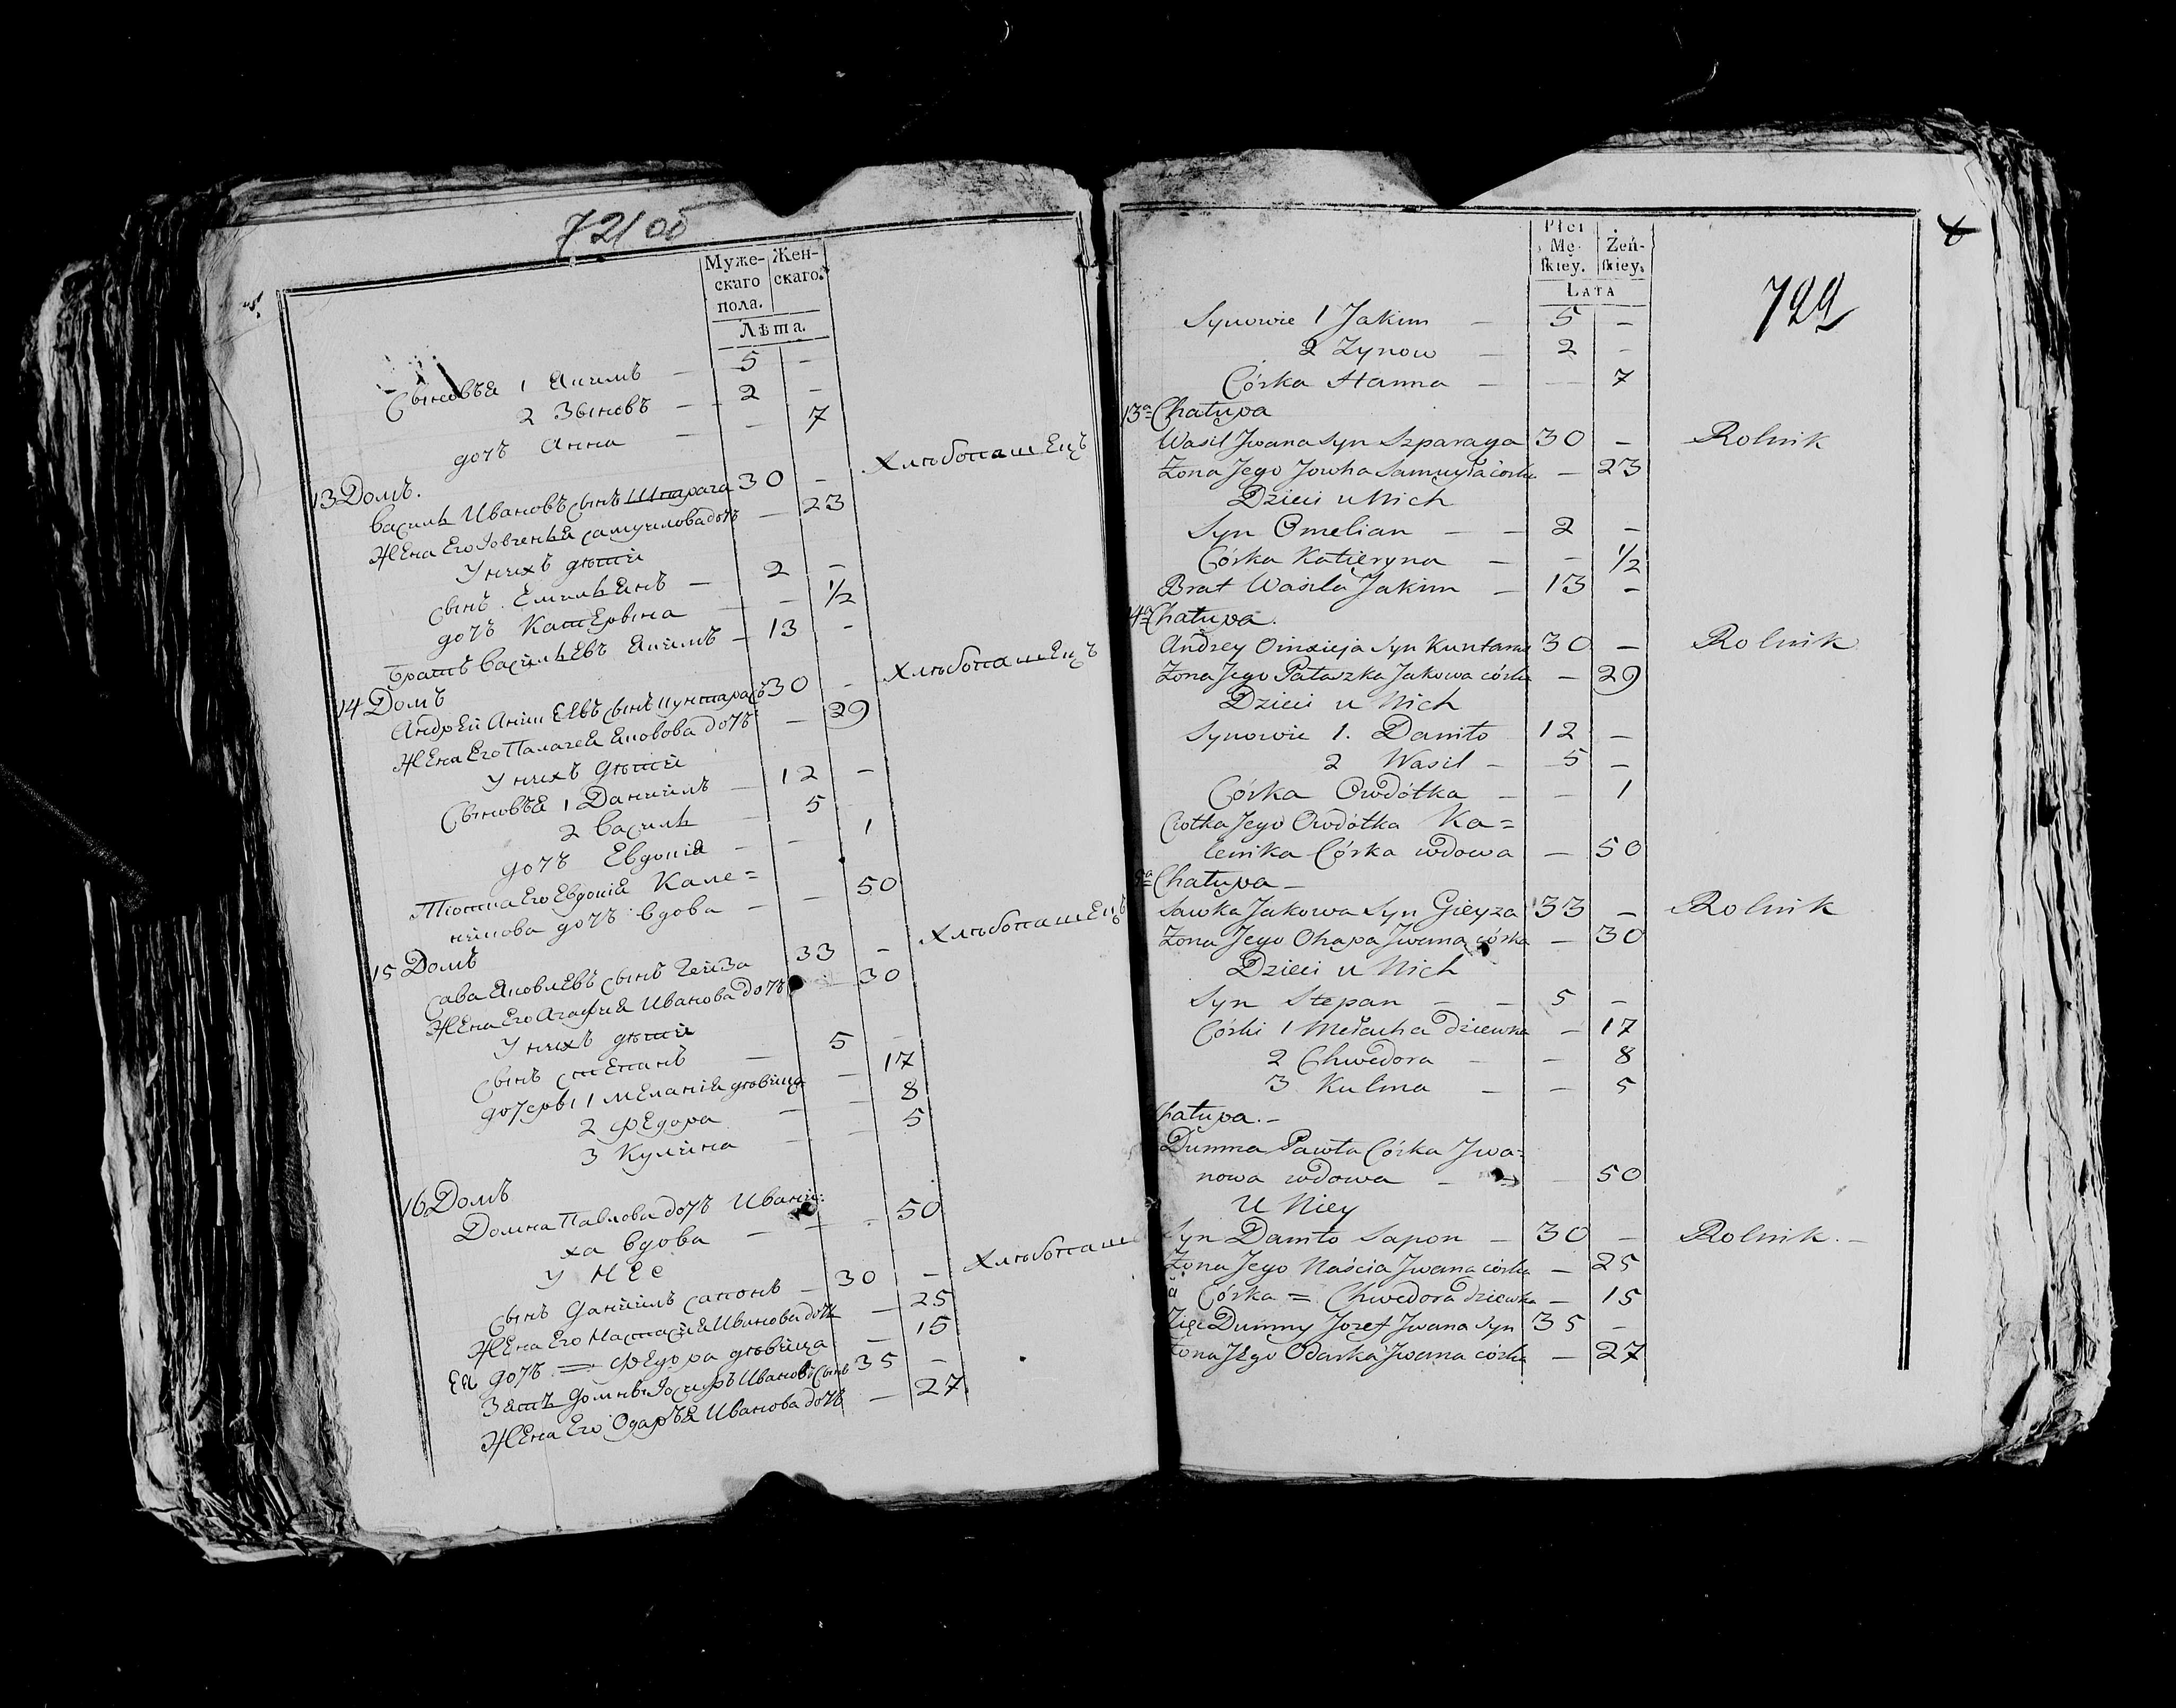 72/об
Муже-
скаго
пола.
Жен-
скаго.
Лѣта.
Сыновья 1 Якимъ – 5 –
2 Зыновъ – 2 –
дочъ Анна – – 7
13 Домъ.
Василь Ивановъ сынъ Шпарага 30 – Хлѣбопашецъ
Жена Его Іовгенья Самуилова дочъ – 23
У нихъ дѣти
сынъ Емельянъ – 2 –
дочъ Катерына – – 1/2
братъ Васильевъ Якимъ – 13 –
14 Домъ
Андрей Анисеевъ сынъ 30 – Хлѣбопашецъ
Жена Его Палагея Яковова дочъ – 29
У нихъ дѣти
Сыновья 1 Даниилъ – 12 –
2 Василь – 5 –
дочъ Евдокія – – 1
Тіотка Его Евдокія Кале=
никова дочъ вдова – – 50
15 Домъ
Сава Яковлевъ сынъ Гейза 33 – Хлѣбопашецъ
Жена Его Агафия Иванова дочъ – 30
У нихъ дѣти
сынъ степанъ – 5 –
дочеры 1 Меланія дѣвица – 17
2 Федора – – 8
3 Кулина – – 5
16 Домъ
Домна Павлова дочъ Ивани=
ха вдова – – 50
У Нее
сынъ Даниилъ Сапонъ – 30 – Хлѣбопаш
Жена Его Настасія Иванова дочъ – 25
Ея дочъ = Федора дѣвица – 15
Зять Домны Іосифъ Ивановъ сынъ 35 –
Жена Его Одарья Иванова дочъ – 27
Płci
Mę-
skiey.
Żeń-
skiey.
LATA
722
Synowie 1 Jakim – 5 –
2 Zynow – 2 –
Córka Hanna – – 7
13a Chałupa
Wasil Jwana Syn Szparaga 30 – Rolnik
Żona Jego Jowha Samuyła córka – 23
Dzieci u Nich
Syn Omelian – – 2 –
Córka Katieryna – – 1/2
Brat Wasila Jakim – 13 –
14a Chałupa.
Andrey Syn 30 – Rolnik
Żona Jego Pałaszka Jakowa córka – 29
Dzieci u Nich
Synowie 1. Daniło 12 –
2 Wasil – 5 –
Córka Owdótka – – 1
Ciotka Jego Owdótka Ka=
lenika Córka wdowa – 50
Chałupa –
Sawka Jakowa Syn Gieyza 33 – Rolnik
Żona Jego Ohapa Jwana córka – 30
Dzieci u Nich
Syn Stepan – – 5 –
Córki 1 Mełacha dziewka – 17
2 Chwedora – – 8
3 Kulina – – 5
Chałupa. –
Dumna Pawła Córka Jwa=
nowa wdowa – – 50
U Niey
Syn Daniło Sapon – 30 – Rolnik. –
Żona Jego Naścia Jwana córka – 25
Córka = Chwedora dziewka – 15
Zięć Dumny Jozef Jwana Syn 35 –
Żona Jego Odarka Jwana córka – 27